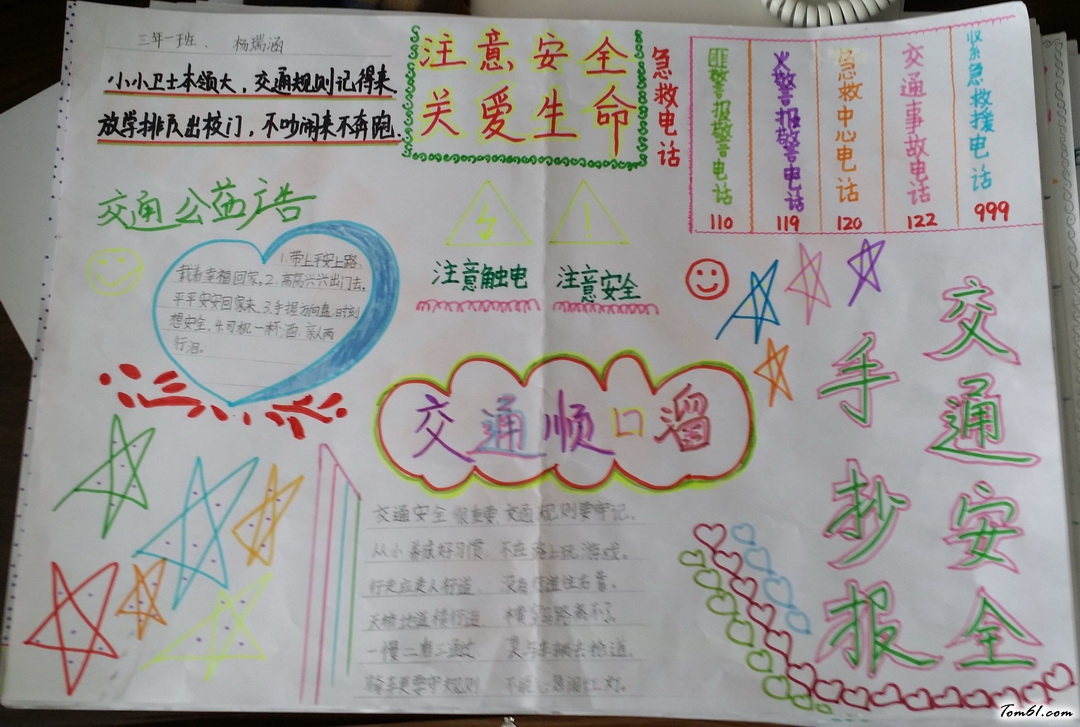 三年一班. 杨瑞涵
小小卫士本领大，交通规则记得来.
放学排队出校门，不吵闹来不奔跑.
注意安全
关爱生命
急救电话
匪警报警电话 110
火警报警电话 119
急救中心电话 120
交通事故电话 122
紧急救援电话 999
交通公益广告
1.带上平安上路，
载着幸福回家。2.高高兴兴出门去，
平平安安回家来.3.手握方向盘，时刻
想安全.4.司机一杯酒 亲人两
行泪。
注意触电
注意安全
交通安全
手抄报
交通顺口溜
交通安全很重要，交通规则要牢记。
从小养成好习惯，不在路上玩游戏。
行走应走人行道，没有行道往右靠。
天桥地道横行道，横穿马路离不了
一慢二看三通过，莫与车辆去抢道。
骑车更要守规则，不能心急闯红灯。
Tom61.com